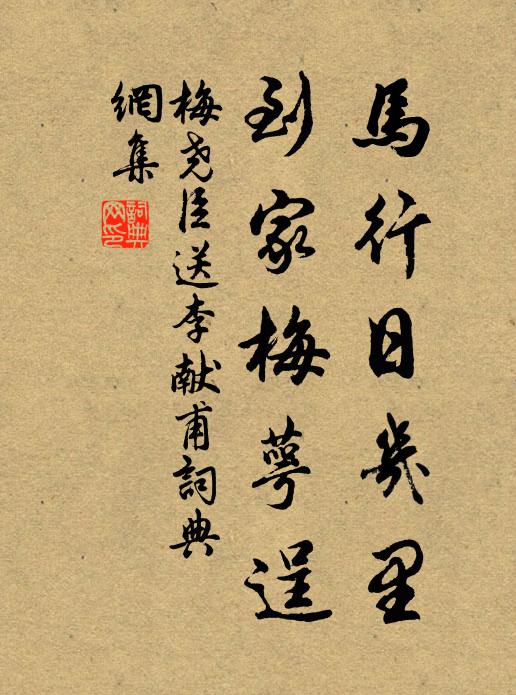 馬行日幾里
到家梅萼逞
梅尧臣送李献甫詞典
網集
詞典
网印